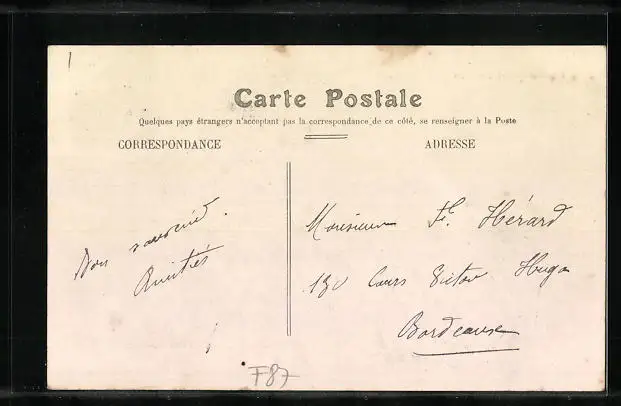 Carte Postale
Quelques pays étrangers n'acceptant pas la correspondance de ce côté, se renseigner à la Poste
CORRESPONDANCE
ADRESSE
Bon souvenir.
Amitiés
Monsieur F. Hérard
130 Cours Victor Hugo
Bordeaux
F87